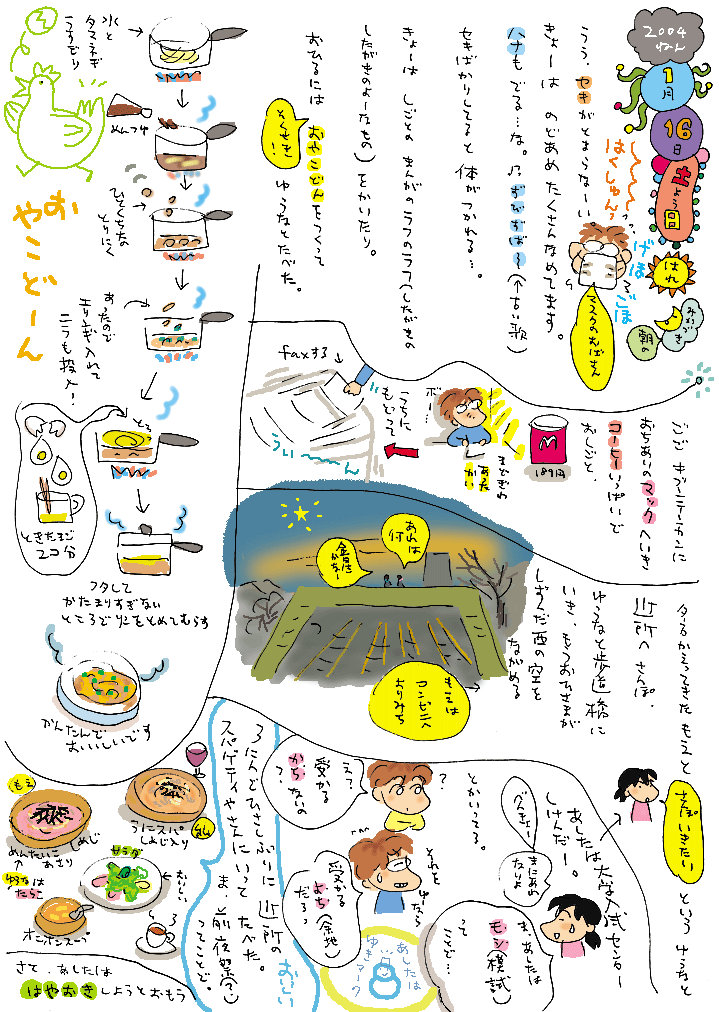 2004
ねん
1
月
16
日
土よう日
はれ
みかづき
朝の
はくしゅん?
げほ
ごほ
マスクのおばさん
うう、セキがとまらなーい
きょーは のどあめ たくさんなめてます。
ハナも でる…な。
(↑古い歌)
セキばかりしてると 体がつかれる…。
きょーは しごとの まんがの ラフのラフ(したがきの
したがきのよーなもの)をかいたり。
おひるには おやこどんをつくって
ゆうなとたべた。
とくせき!
水と
タマネギ
めんつゆ
ひとくち大の
とりにく
あったので
エリンギ入れて
ニラも投入!
とろ
ときたまご
2コ分
フタして
かたまりすぎない
ところで火をとめてむらす
かんたんで
おいしいです
おやこどーん
ごご
おちあいのマックへいき
コーヒーいっぱいで
おしごと。
M
189円
まどぎわ
あったかい
ボー…
うちに
もどって
faxする
うぃ〜〜ん
夕方かえってきた もえと
近所へさんぽ。
ゆうなと歩道橋に
いき、もうおひさまが
しずんだ西の空を
ながめる
あれは
金星
かなー
もえは
コンビニへ
よりみち
さっぽいきたい
という ゆうなと
あしたは大学入試センター
しけんだー。
べんきょー
まにあわ
ないよ
ま、あしたは
モシ(模試)
って
ことで…
とかいってる。
えっ?
受かる
かちないの
?
それを
ゆーなら
受かる
よち(余地)
だろっ
あしたは
ゆきマーク
3にんでひさしぶりに 近所の おいしい
スパゲティやさんにいって たべた。
ま 前夜祭(?)
ってことで。
もえ
めんたいこ
あさり
しめじ
うにスパ
しめじ入り
私
ゆうなは
たらこ
サラダ
おいしい
オニオンスープ
3
さて、あしたは
はやおきしようとおもう